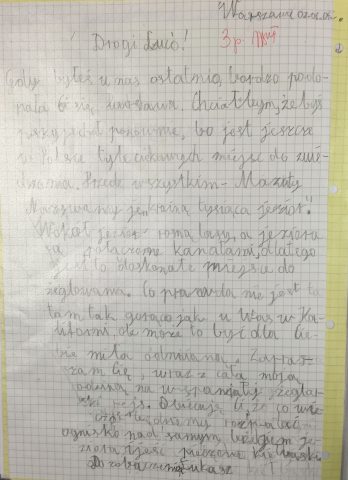 Warszawa 02.06.05r.
Drogi Luc! 3p.
Gdy byłeś u nas ostatnio, bardzo podo-
bała Ci się warszawa. Chciałbym, żebyś
przyjechał ponownie, bo jest jeszcze
w Polsce tyle ciekawych miejsc do zwie-
dzania. Przede wszystkim - Mazury
Nazywany je „krainą tysiąca jezior".
Wokół jezior rosną lasy, a jeziora
są połączone kanałami, dlatego
jest to doskonałe miejsce do
żeglowania. Co prawda nie jest tu
tam tak gorąco jak u Was w Ka-
liforni, ale może to być dla Cie-
bie miła odmiana. Zapras-
zam Cię, wraz z całą moją
rodziną na wspaniały żeglar-
ski rejs. Obiecuję Ci, że co wie-
czór będziemy rozpalać
ognisko nad samym brzegiem je-
ziora i jeść pieczone kiełbaski.
Do zobaczenia Łukasz